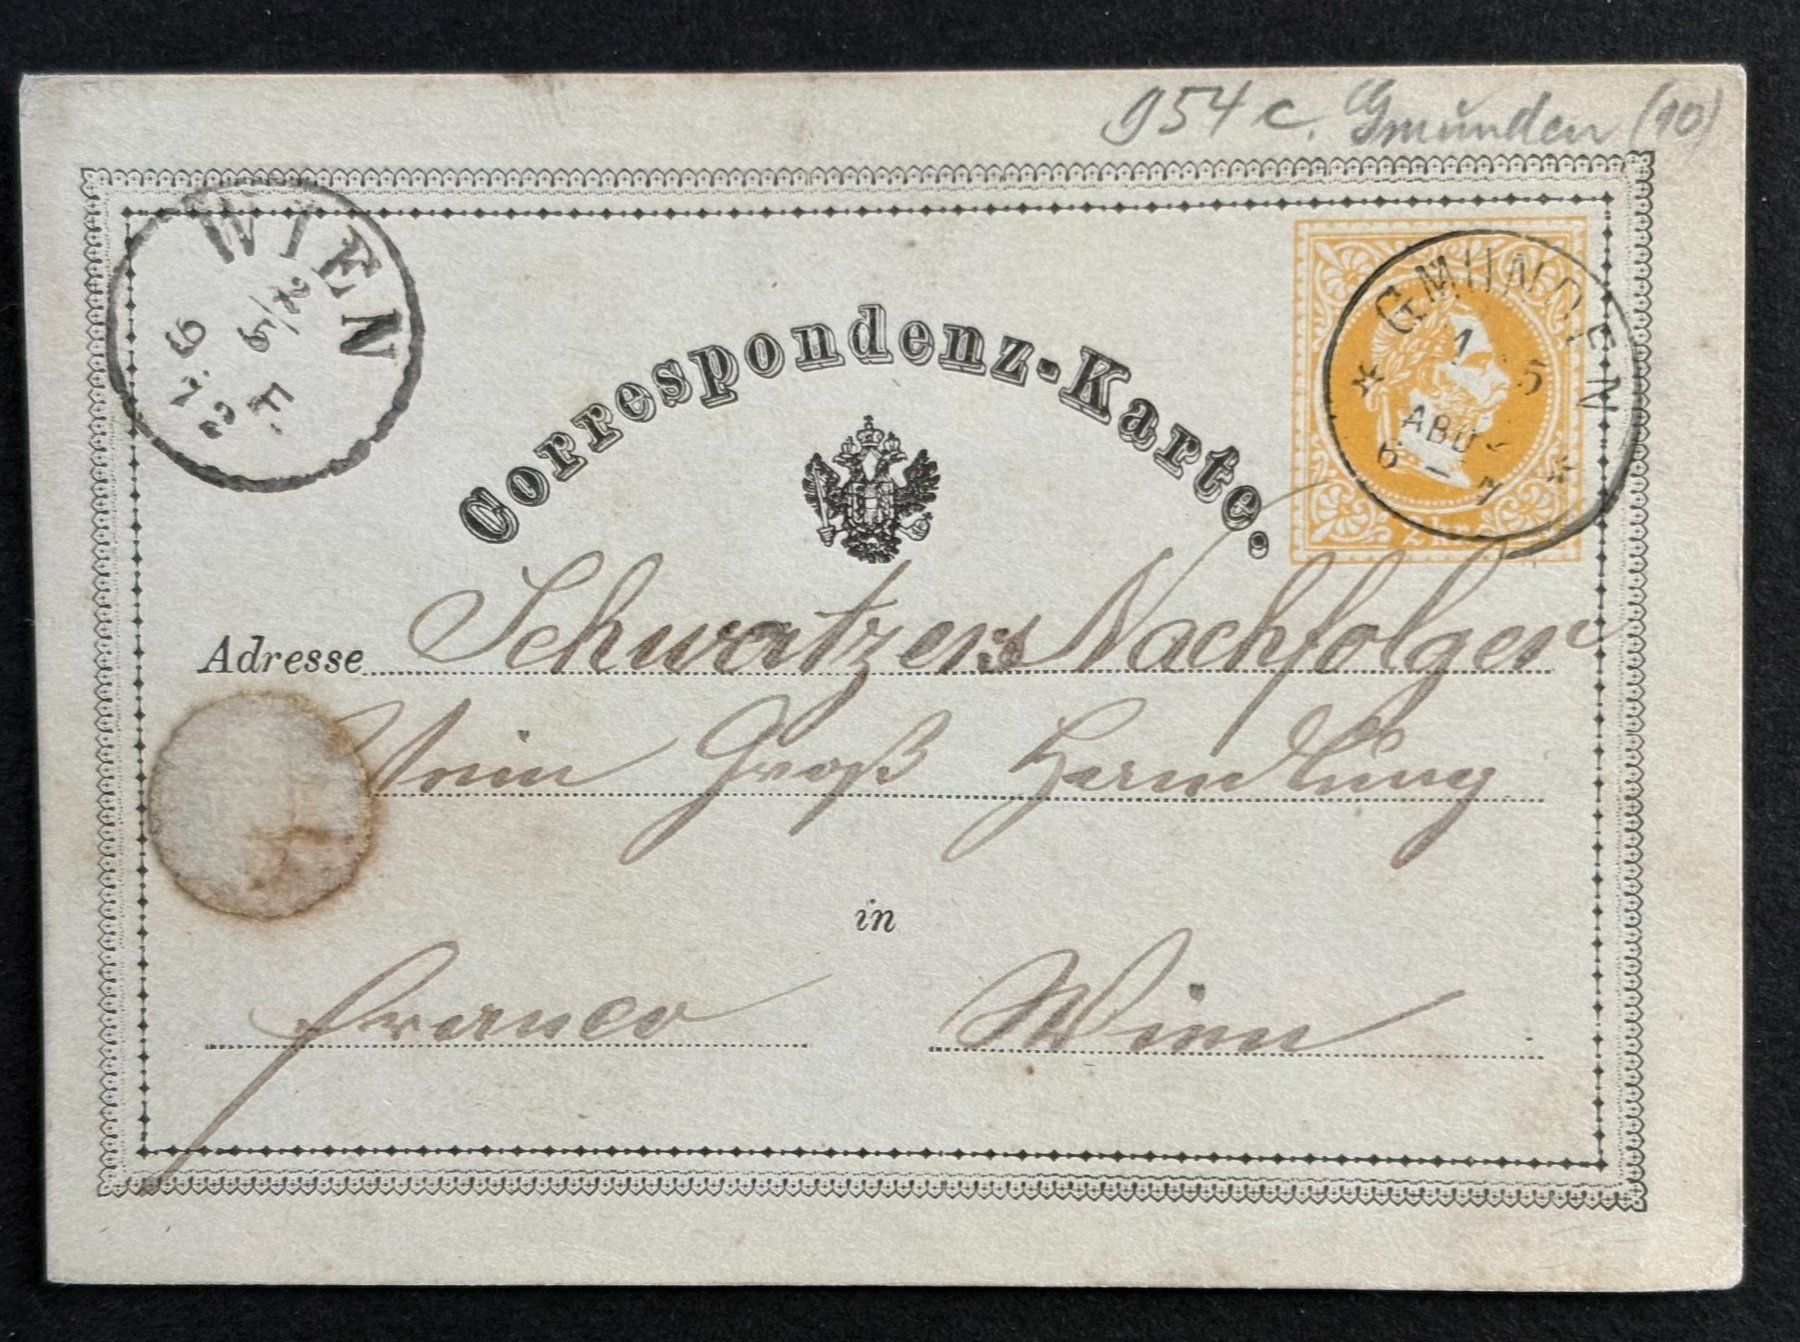 954 c. Gmunden (10)
WIEN
2/5
F
GMUNDEN
1 5
ABDS
6 - 7
Correspondenz-Karte.
2 kr.
Adresse Schwatzers Nachfolger
Wein Groß Handlung
in
franco Wien